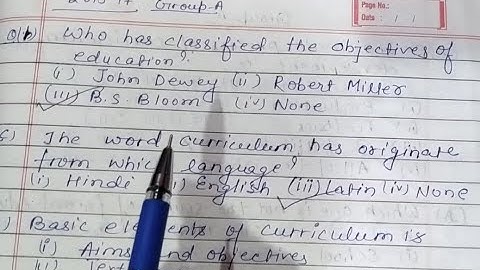 Group-A
Page No.:
Date: / /
Q(b) Who has classified the objectives of
education?
(i) John Dewey (ii) Robert Miller
(iii) B.S. Bloom (iv) None
The word curriculum has originate
from which language?
(i) Hindi English (iii) Latin (iv) None
Basic of curriculum is
(i) Aims and objectives
(ii)